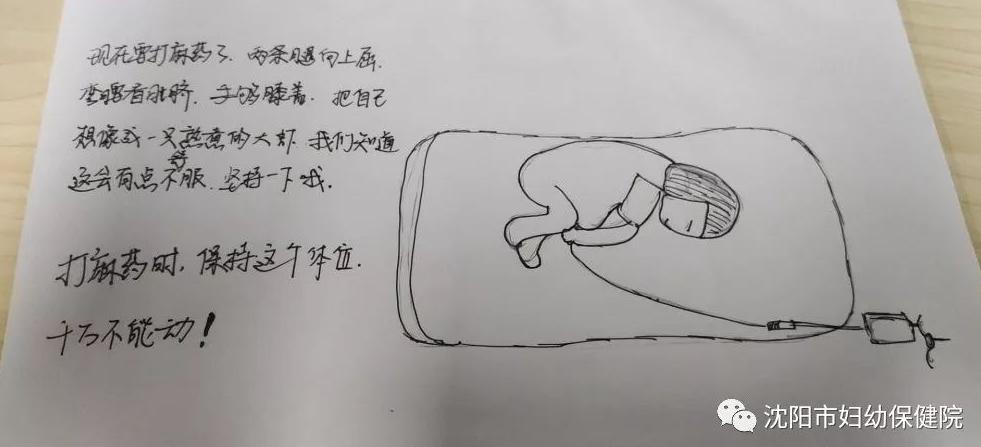 现在要打麻药了.两条腿向上屈.
眼看肚脐.手够膝盖.把自己
想像成一只熟煮的大虾.我们知道
这会有点不舒服.坚持一下哦.
打麻药时,保持这个体位.
千万不能动!
沈阳市妇幼保健院